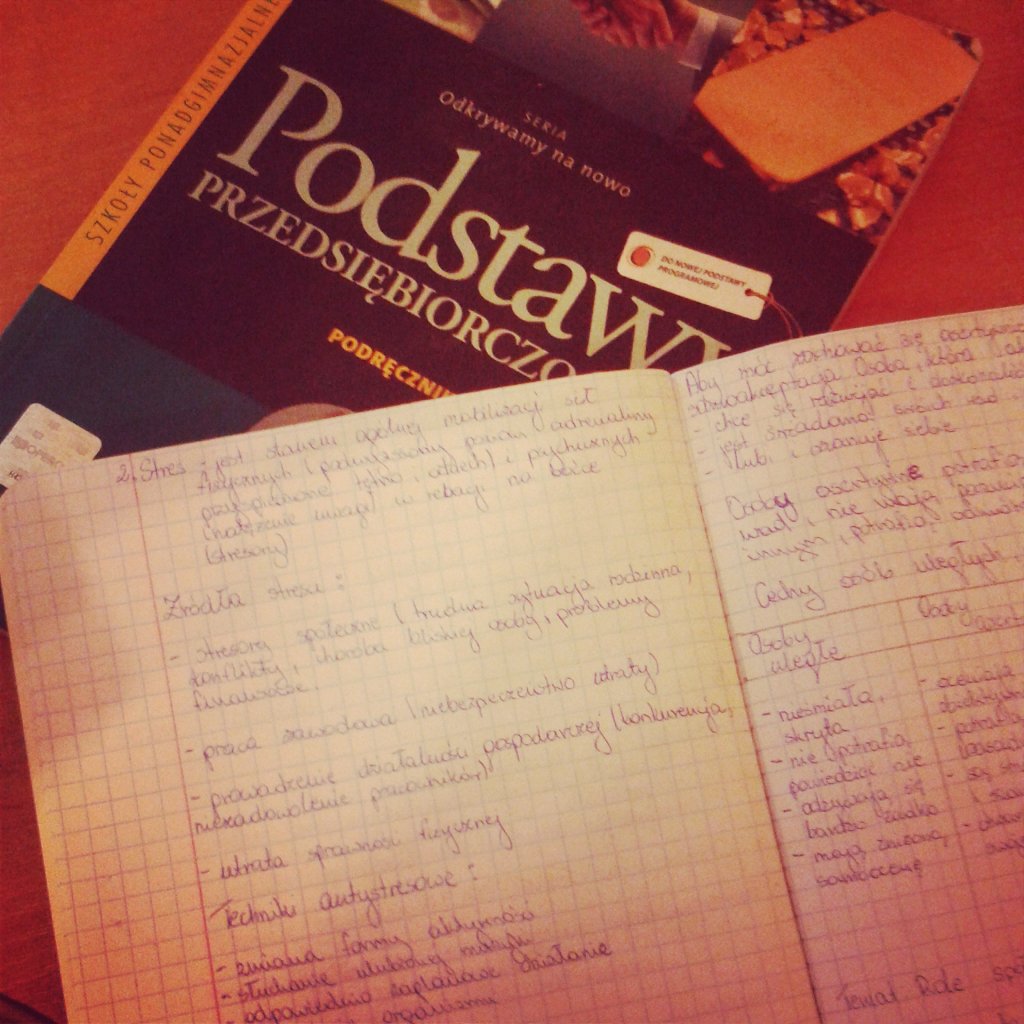 SZKOŁY PONADGIMNAZJALNE
SERIA
Odkrywamy na nowo
Podstawy
PRZEDSIĘBIORCZO
DO NOWEJ PODSTAWY
PROGRAMOWEJ
PODRĘCZNIK
2. Stres - jest stanem ogólnej mobilizacji sił
fizycznych (podwyższony poziom adrenaliny
przyspieszone tętno, oddech) i psychicznych
(natężenie uwagi) w reakcji na bodźce
(stresory)
Źródła stresu:
- stresory społeczne (trudna sytuacja rodzinna,
konflikty, choroba bliskiej osoby, problemy
finansowe.
- praca zawodowa (niebezpieczeństwo utraty)
- prowadzenie działalności gospodarczej (konkurencja,
niezadowolenie pracowników)
- utrata sprawności fizycznej
Techniki antystresowe:
- zmiana formy aktywności
- słuchanie ulubionej muzyki
- odpowiednio zaplanowane działanie
organizmu
Aby móc zachować się asertywnie
samoakceptacja Osoba, która
- chce się rozwijać i doskonalić
- jest świadoma swoich wad
- lubi i szanuje siebie
Osoby asertywne potrafią
wad, nie wolają
innym, potrafią odmów
Cechy osób uległych
Osoby
uległe
Osoby
asert
- nieśmiała,
skryta
- nie potrafią
powiedzieć nie
- odzywają się
bardzo rzadko
- mają zaniżoną
samoocenę
- potrafią
- są
Temat Role